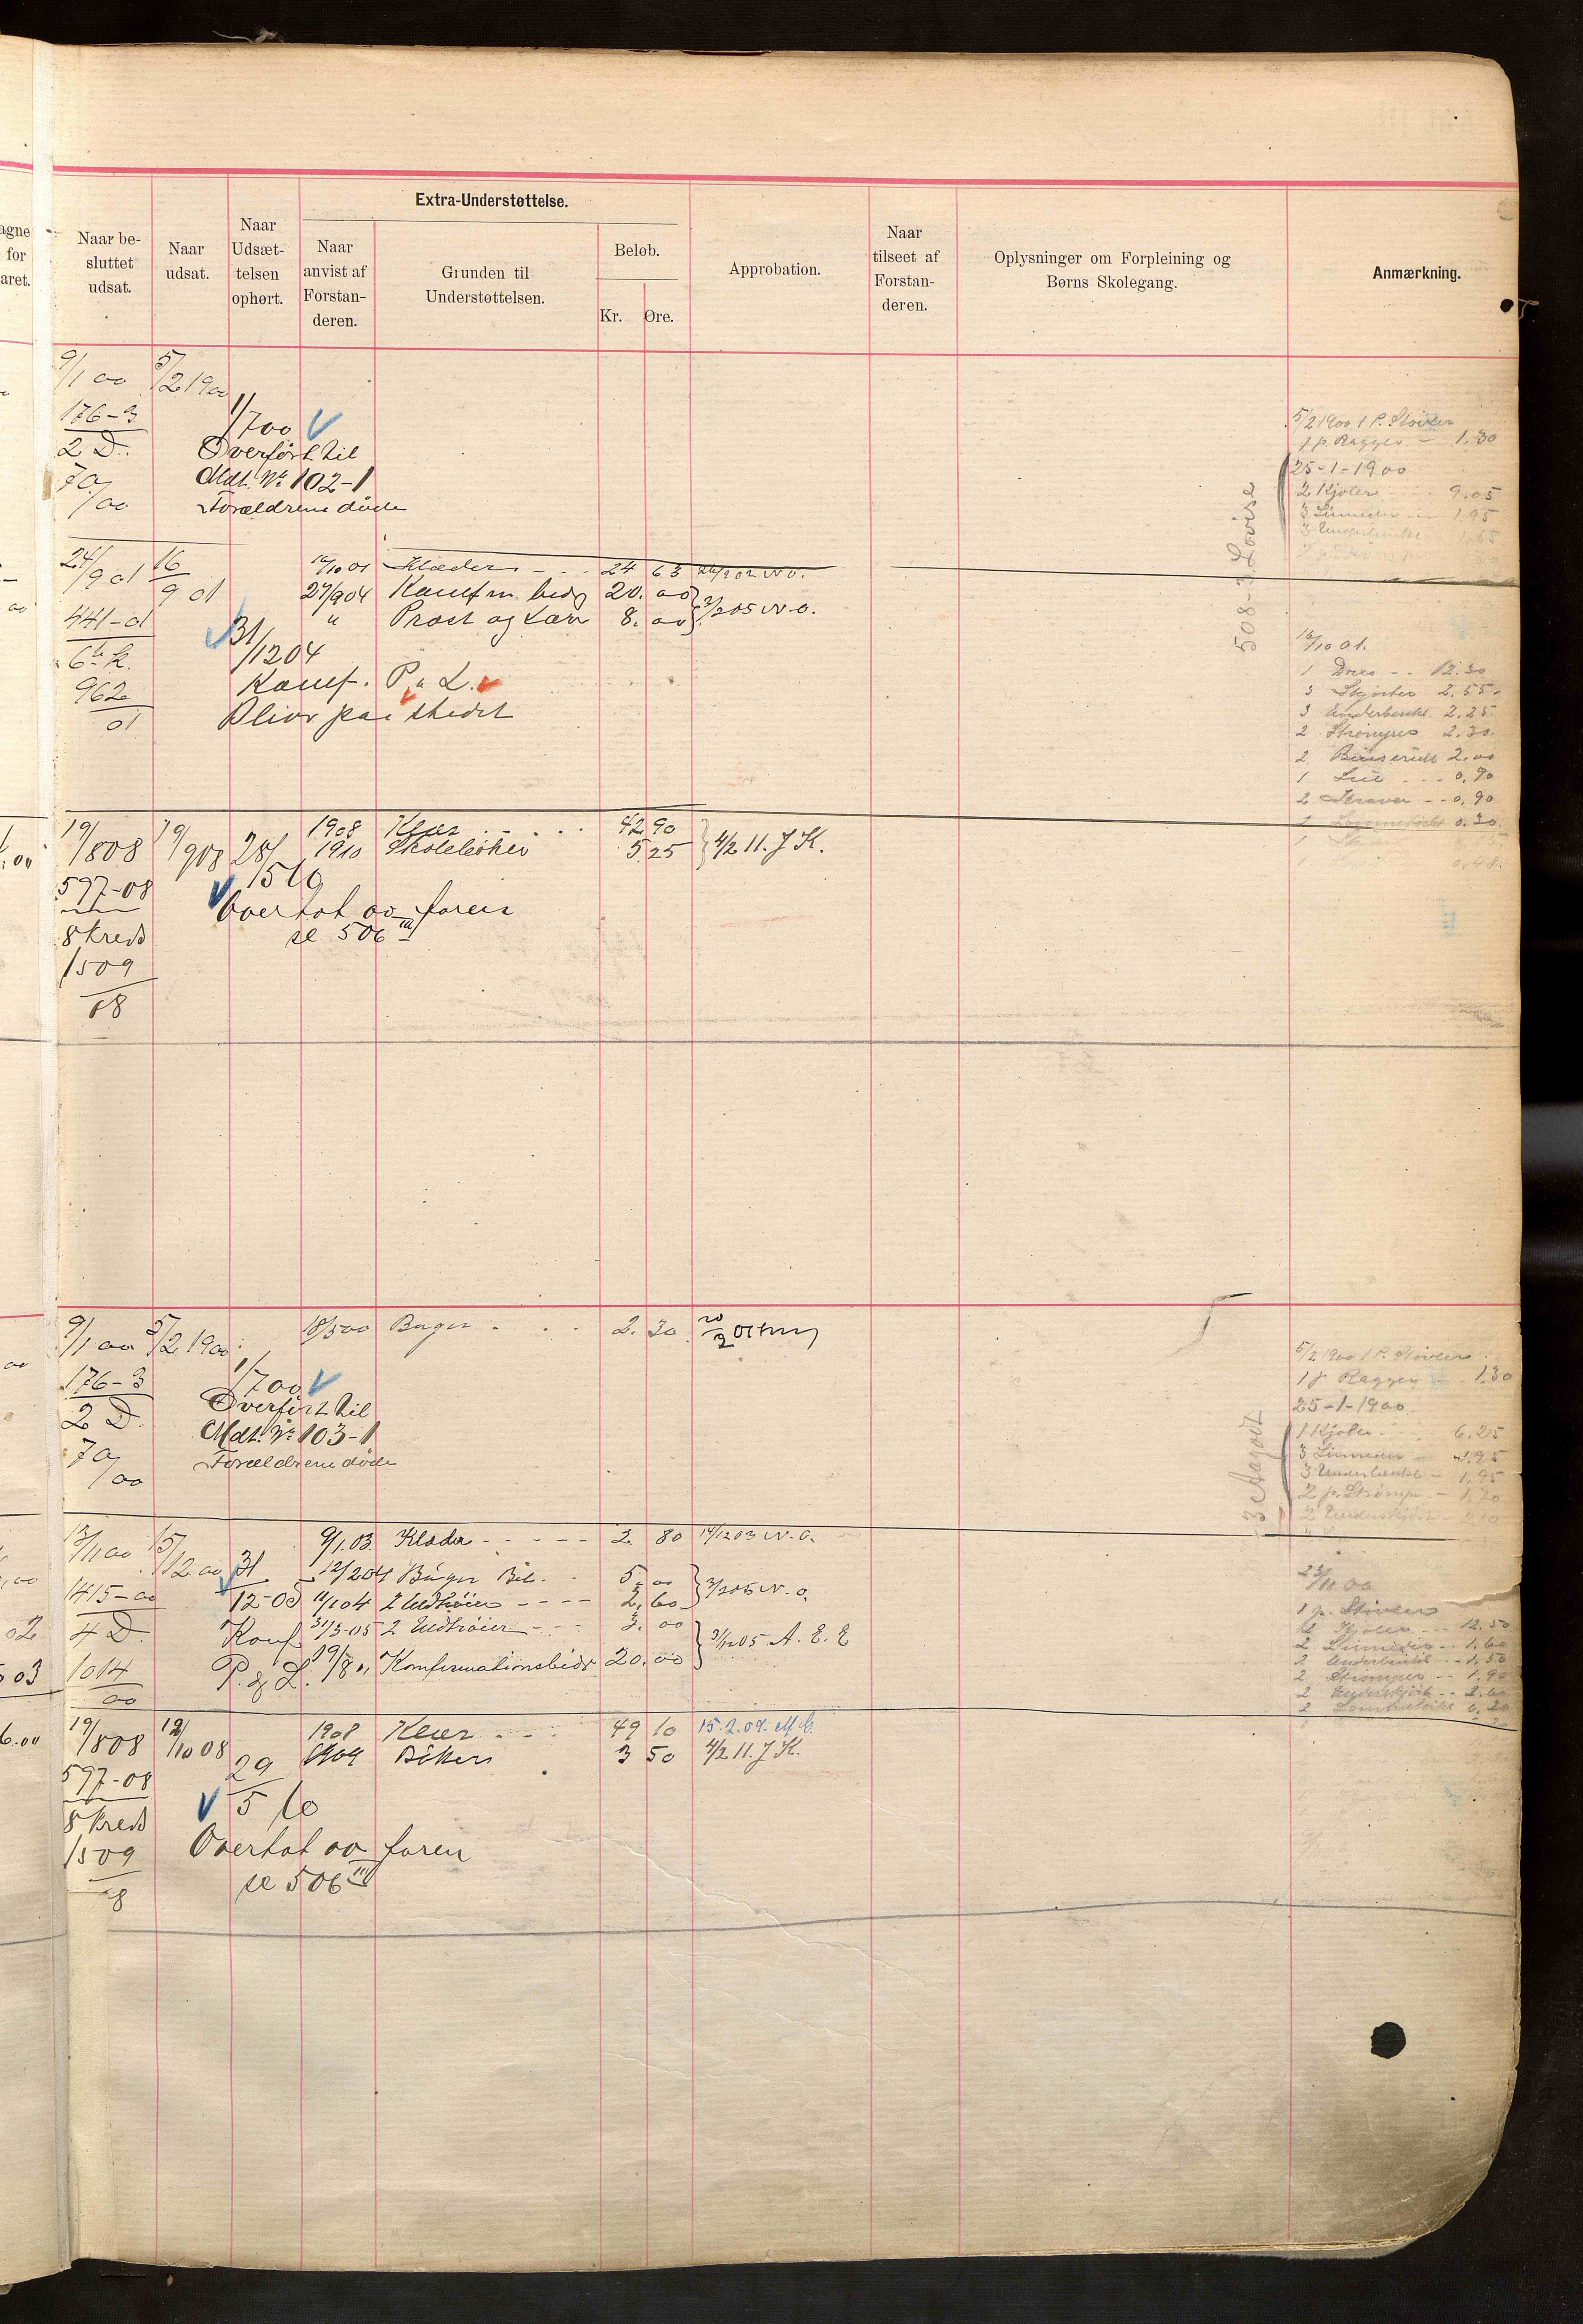 Naar be-
sluttet
udsat.
Naar
udsat.
Naar
Udsæt-
telsen
ophørt.
Extra-Understøttelse.
Naar
anvist af
Forstan-
deren.
Grunden til
Understøttelsen.
Beløb.
Kr. Øre.
Approbation.
Naar
tilseet af
Forstan-
deren.
Oplysninger om Forpleining og
Børns Skolegang.
Anmærkning.
agne
for
aret.
9/1 00 5/2 1900
176-3
1/7 00
2 D.
Overført til
70/00
Mdt. No 102-1
Forældrene døde
5/2 1900 1 P. Støvler
1 p. Ragger - 1.30
25-1-1900
2 Kjoler 9.05
3 1.95
3 1,65
508-3 Lovise
24/9 01 16/9 01
16/10 01 Klæder - - - 24 63
27/9 04 Konfm. bidg 20. 00
" Præst og Lær 8. 00 3/2 05 N.O.
441-01
31/12 04
6te K.
962/01
Konf. P. " L.
Bliver paa stedet
16/10 01.
1 Dres - - 12.30
3 Skjorter 2.55
3 Underbenkl. 2.25
2 Strømper 2.30
2 2.00
1 Lue - - 0,90
2 - - 0,90
0.30
0,48
19/8 08 19/9 08 28/5 10
1908 Klær . . . . 42 90
1910 Skolebøker 5 25 4/2 11. J K.
597-08
Overtat av faren
se 506 III
8 Kreds
1509/08
9/1 00 5/2 1900
18/5 00 Bøger . . . 2. 30
176-3
1/7 00
2 D.
Overført til
70/00
Mdt. No 103-1
Forældrene døde
5/2 1900 1 P. Støvler
1 p Ragger 1.30
25-1-1900
1 Kjoler - 6.25
3 - 1.95
3 Underbenkl - 1.95
2 p. Strømp - 1,70
3 Aagodt
13/11 00 15/12 00 31/12-05
9/1.03. Klæder - - - - - 2. 80 14/12 03 N.O.
12/2 04 Bøger Bib. - - 5. 00
11/1 04 2 Undtrøier - - - - 2. 60 3/2 05 N.O.
31/3-05 2 Undtrøier - - - 3. 00
19/8 01 Konfirmationsbidr 20. 00 31/12 05 A. E. E
1415-00
4 D.
1014/00
Konf
P. & L.
23/11 00
1 p. Støvler
Kjoler - - - 12.50
2 - - 1.60
2 Underbenkl - - 1.50
2 Strømper - - 1.90
2 Underskjørt - - 2.60
2 0.20
19/8 08 12/10 08 29/5 10
1908 Klær . . . 49 10 15.2.09.
1909 Bøker 3 50 4/2 11. J K.
597-08
8 Kreds
1509/08
Overtat av faren
se 506 III